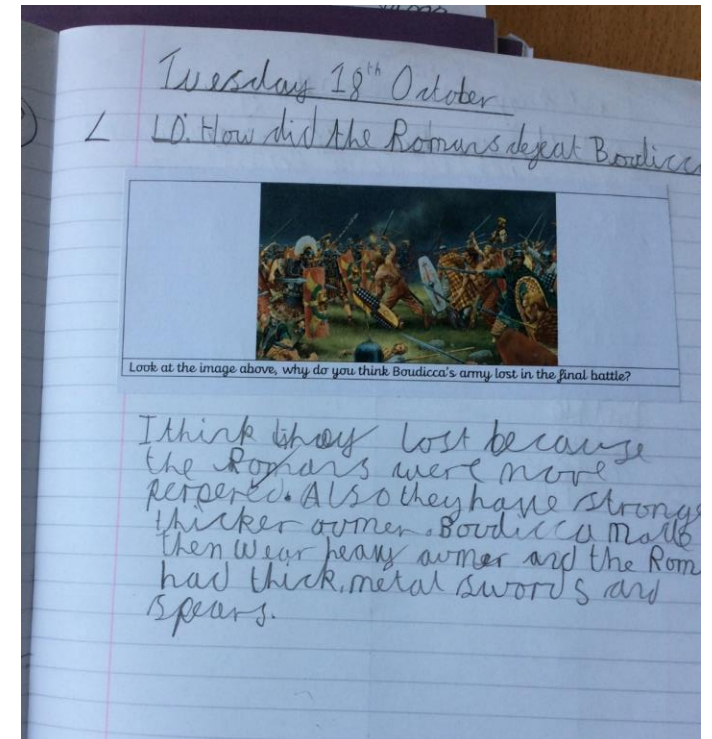 Tuesday 18th October
L LO: How did the Romans defeat Boudicca
Look at the image above, why do you think Boudicca's army lost in the final battle?
I think they lost because
the Romans were more
perpered. Also they have stronge
thicker aumer. Boudicca made
then wear heavy aumer and the Rom
had thick, metal swords and
spears.